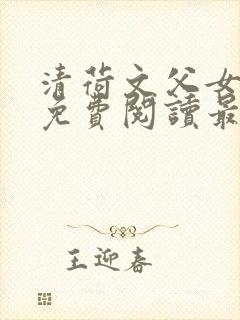 清荷文父女
免費閱讀最
王迎春